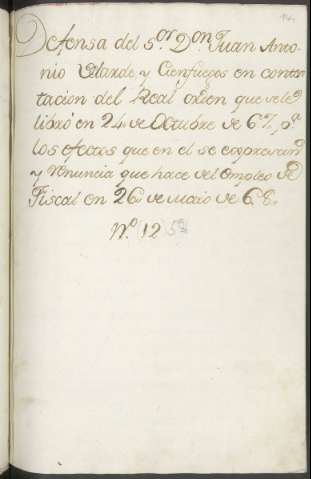 Defensa del S.or Don Juan Anto-
nio Velarde, y Cienfuegos en contes
tacion del Real orden que se le
libró en 24 de Octubre de 67. p.a
los efectos que en el se expresaron
y renuncia que hace del empleo de
Fiscal en 26 de Marzo de 68.
N.o 12